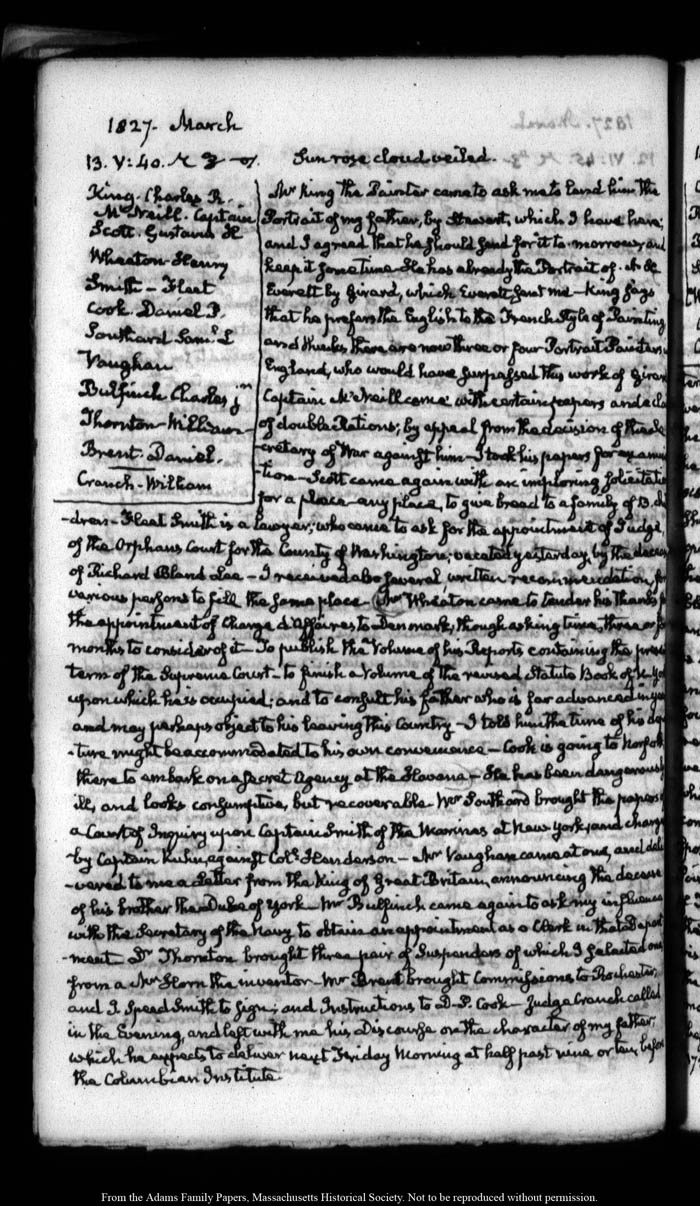 1827. March
13. V:40. Sun rose cloud veiled.
King. Charles R.
McNeill. Captain
Scott. Gustavus H
Wheaton Henry
Smith - Fleet
Cook Daniel P.
Southard Saml. L
Vaughan
Bulfinch Charles jr.
Thornton - William -
Brent. Daniel.
Cranch - William
Mr King the Painter came to ask me to lend him the
Portrait of my father, by Stewart, which I have here;
and I agreed that he should send for it to-morrow, and
keep it some time. He has already the Portrait of A. H.
Everett by Girard, which Everett sent me - King says
that he prefers the English to the French style of Painting
and thinks there are now three or four Portrait Painters in
England, who would have surpassed this work of
Captain McNeill came with certain papers and
of double Rations; by appeal from the decision of the
-cretary of War against him - I took his papers for
-tion - Scott came again with an imploring
for a place - any place, to give bread to a family of 13.
-dren - Fleet Smith is a Lawyer; who came to ask for the appointment of Judge,
of the Orphans Court for the County of Washington; vacated yesterday, by the
of Richard Bland Lee - I received also several written recommendation,
various persons to fill the same place - Mr Wheaton came to tender his thanks
the appointment of Chargé d'Affaires to Denmark, though asking time, three or
months to consider of it - To publish the Volume of his Reports containing the
term of the Supreme Court - to finish a Volume of the revised Statute Book of
upon which he is occupied; and to consult his father who is far advanced in
and may perhaps object to his leaving this Country - I told him the time of his
-ture might be accommodated to his own convenience - Cook is going to Norfolk
there to embark on a secret Agency at the Havana - He has been dangerously
ill, and looks consumptive, but recoverable Mr Southard brought the papers
a Court of Inquiry upon Captain Smith of the Marines at New York, and
by Captain Kuhn, against Coll. Henderson - Mr Vaughan came at one, and
-vered to me a Letter from the King of Great Britain, announcing the decease
of his brother the Duke of York - Mr Bulfinch came again to ask my influence
with the Secretary of the Navy to obtain an appointment as a Clerk in that Depart
-ment Dr Thornton brought three pair of Suspenders of which I selected one,
from a Mr Horn the inventor - Mr Brent brought Commissions to Rochester,
and J Speed Smith to sign; and Instructions to D. P. Cook - Judge Cranch called
in the Evening, and left with me his Discourse on the character of my father,
which he expects to deliver next Friday Morning at half past nine or ten, before
the Columbian Institute.
From the Adams Family Papers, Massachusetts Historical Society. Not to be reproduced without permission.